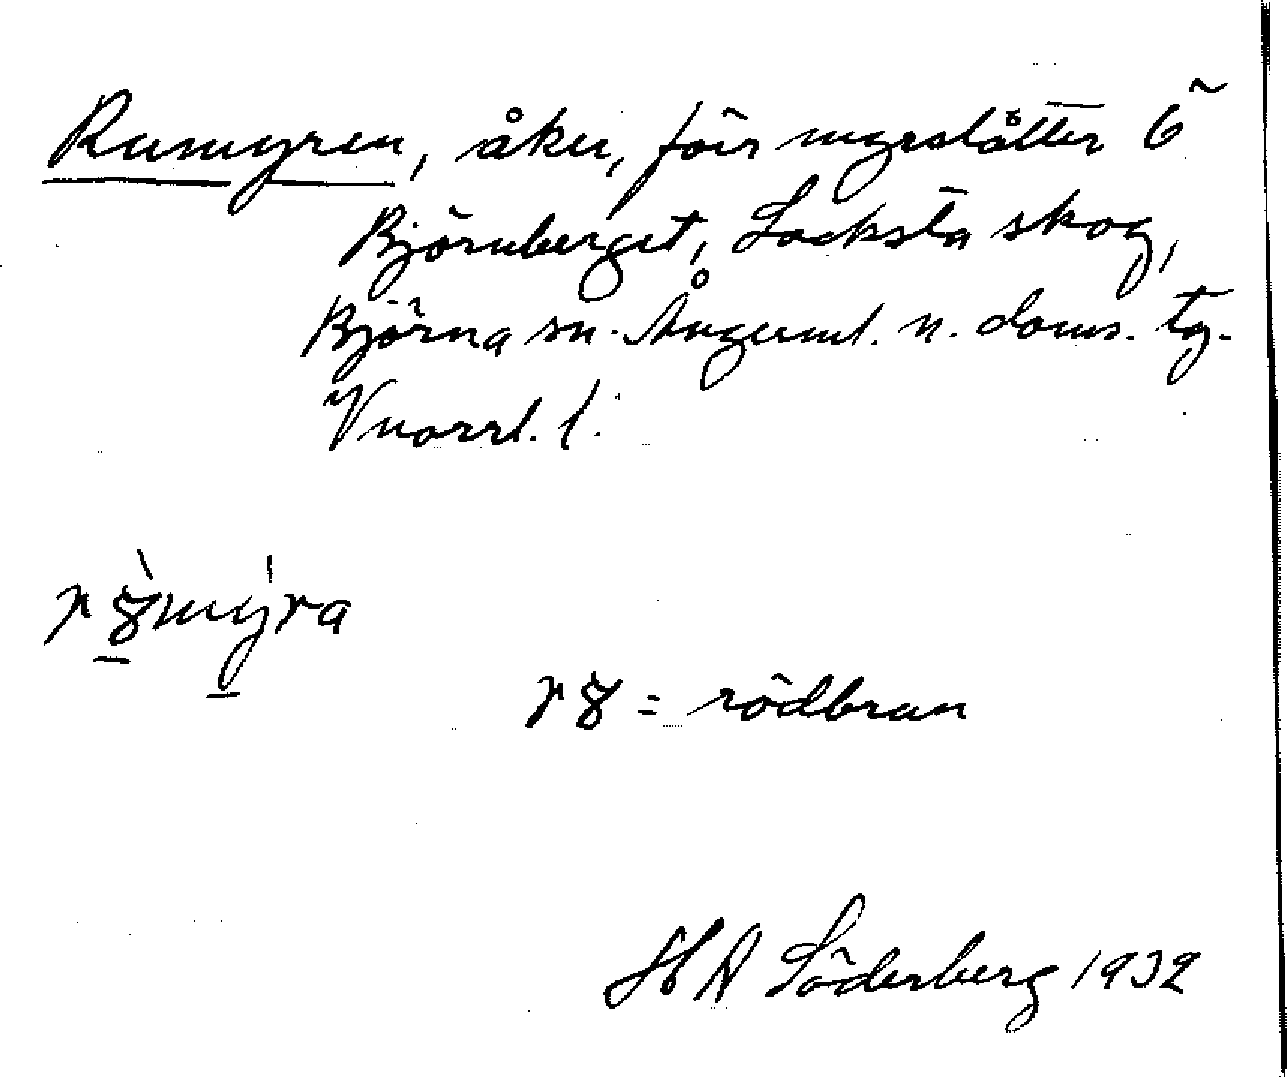 Rumyren, åker, förr myrslåtter
Björnberget, Locksta skog,
Björna sn. Ångerml. n. doms. tg.
Vnorrl. l.
mýra
= rödbrun
HA Söderberg 1932